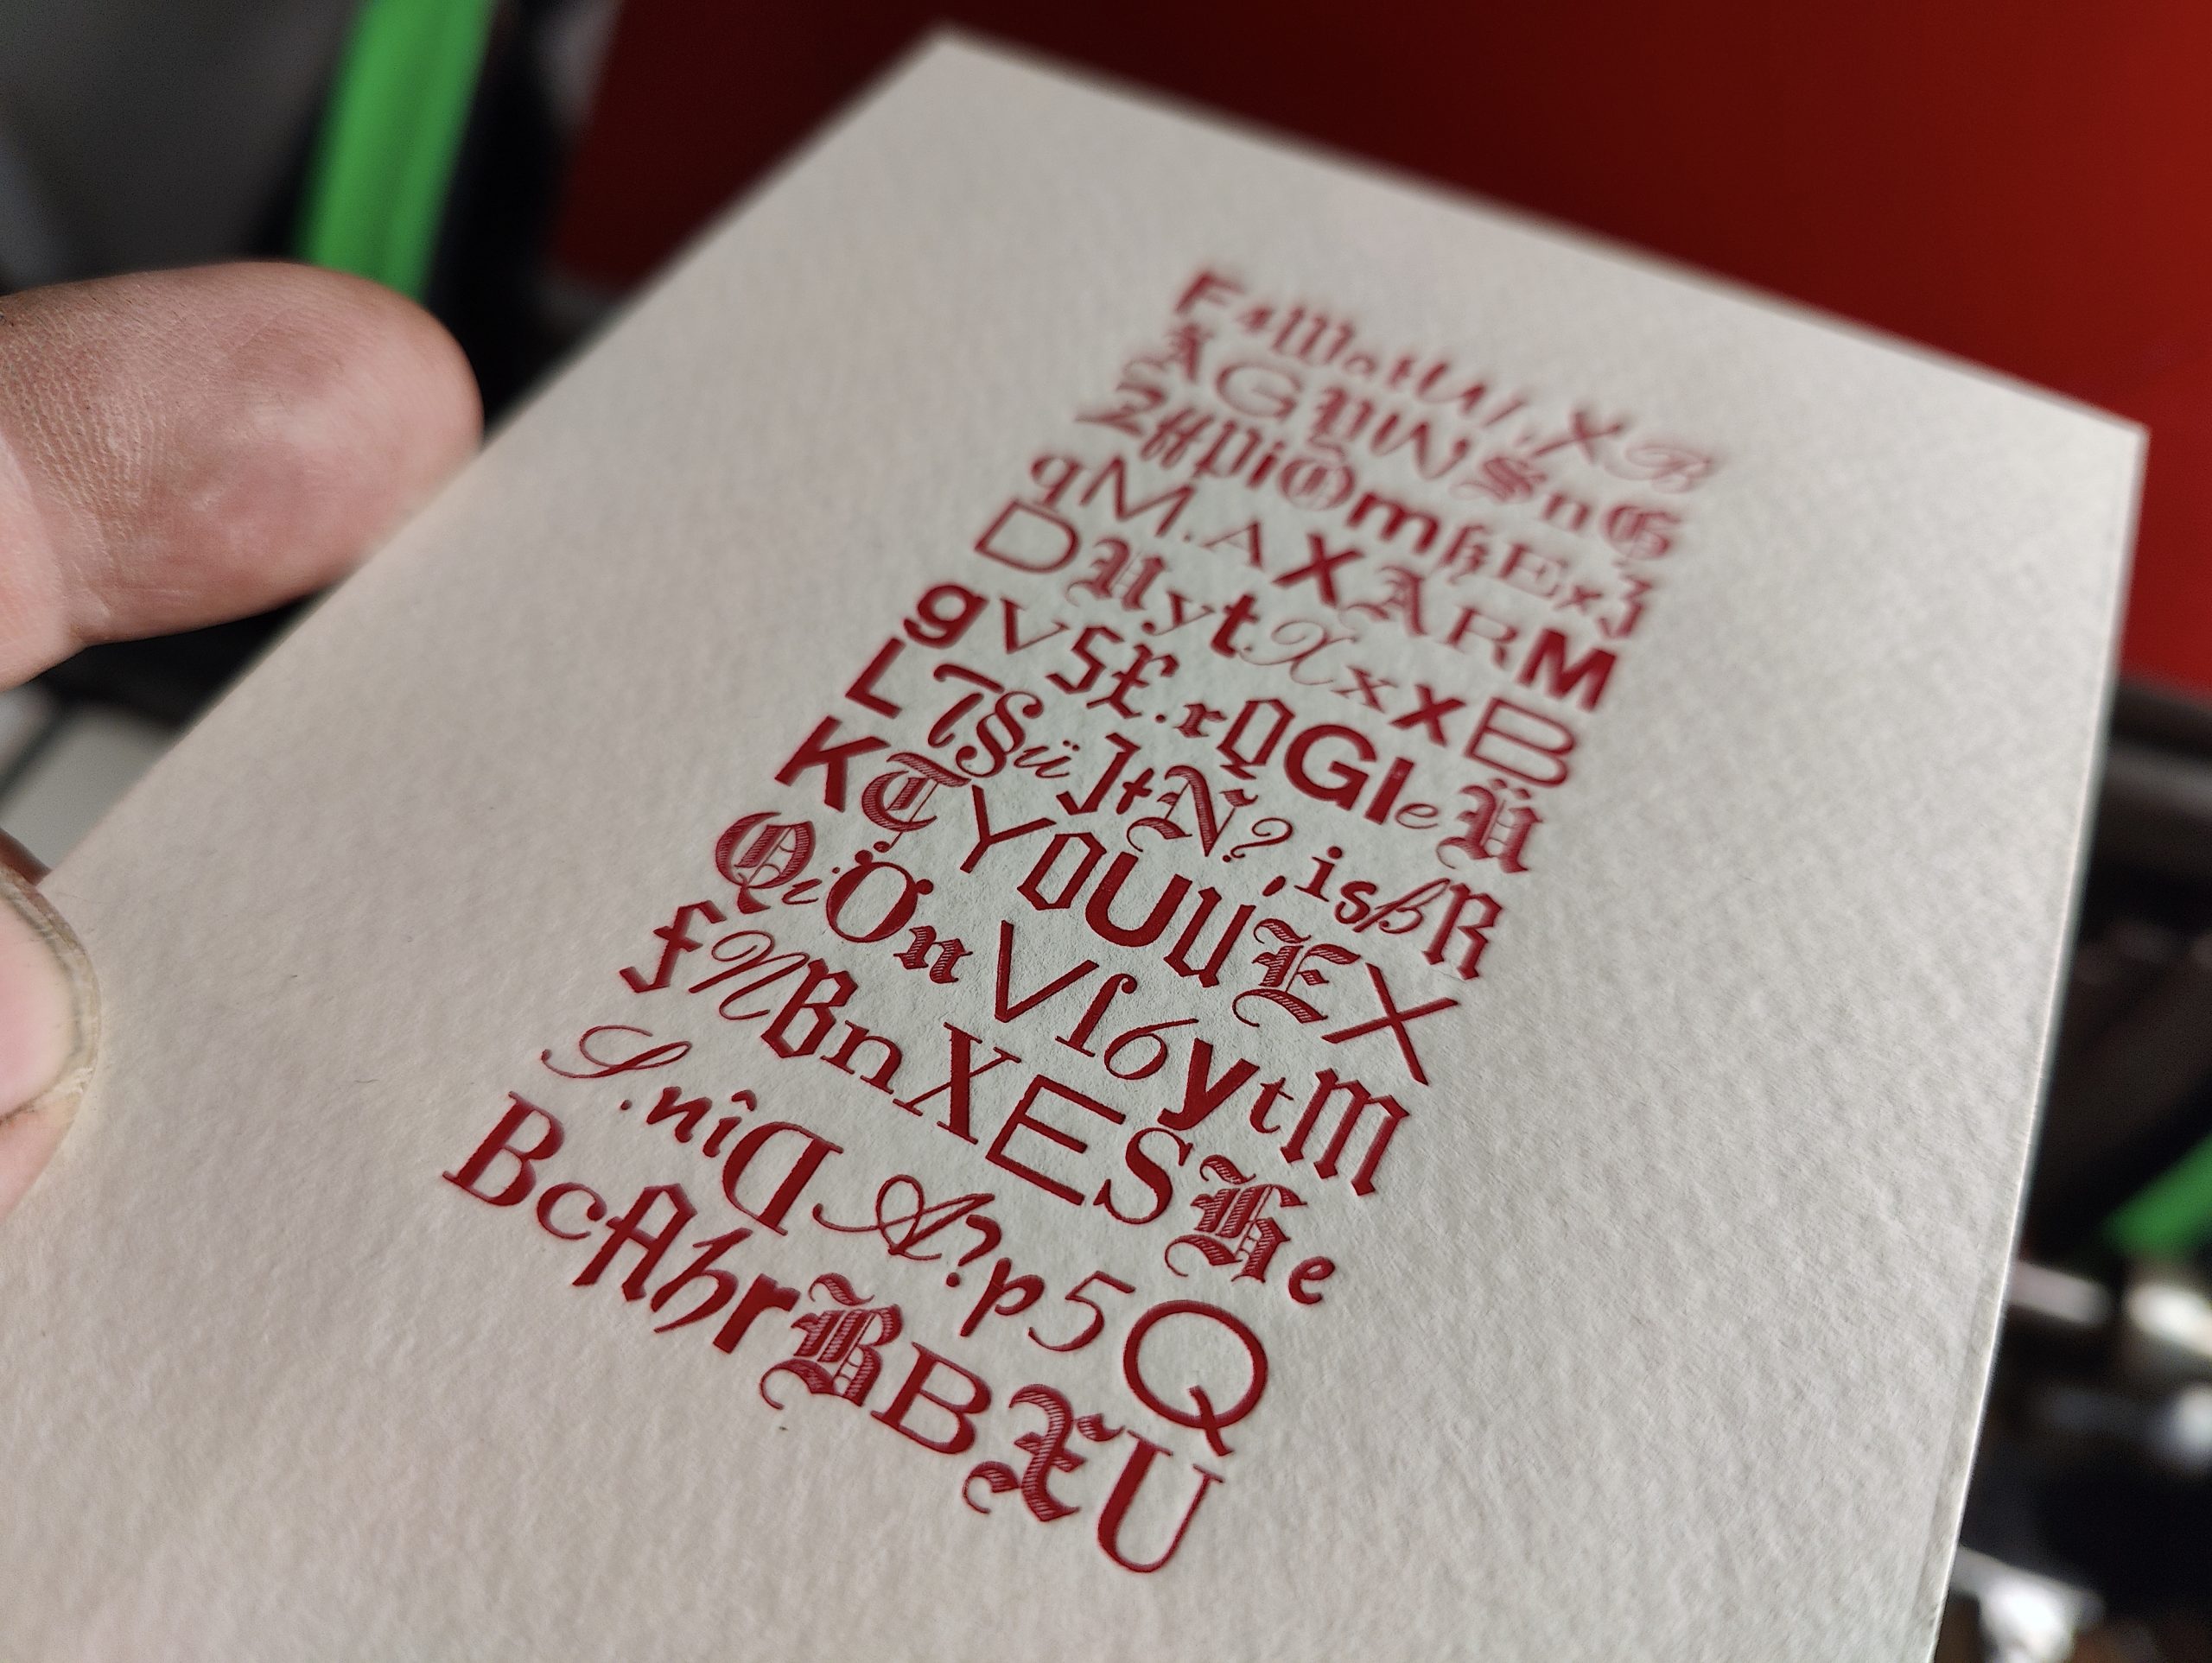 F4WatU/.XB
ÄGYIWSnG
2ffpiOmkEx3
qM.AXARM
DUytXxxB
gVSX.rQGIeÜ
LTSüJtN?,isßR
KTYOUUEX
QiÖnVſ6ytM
fNBnXESKe
S.nîD.A?p5Q
BcAhrBBXU